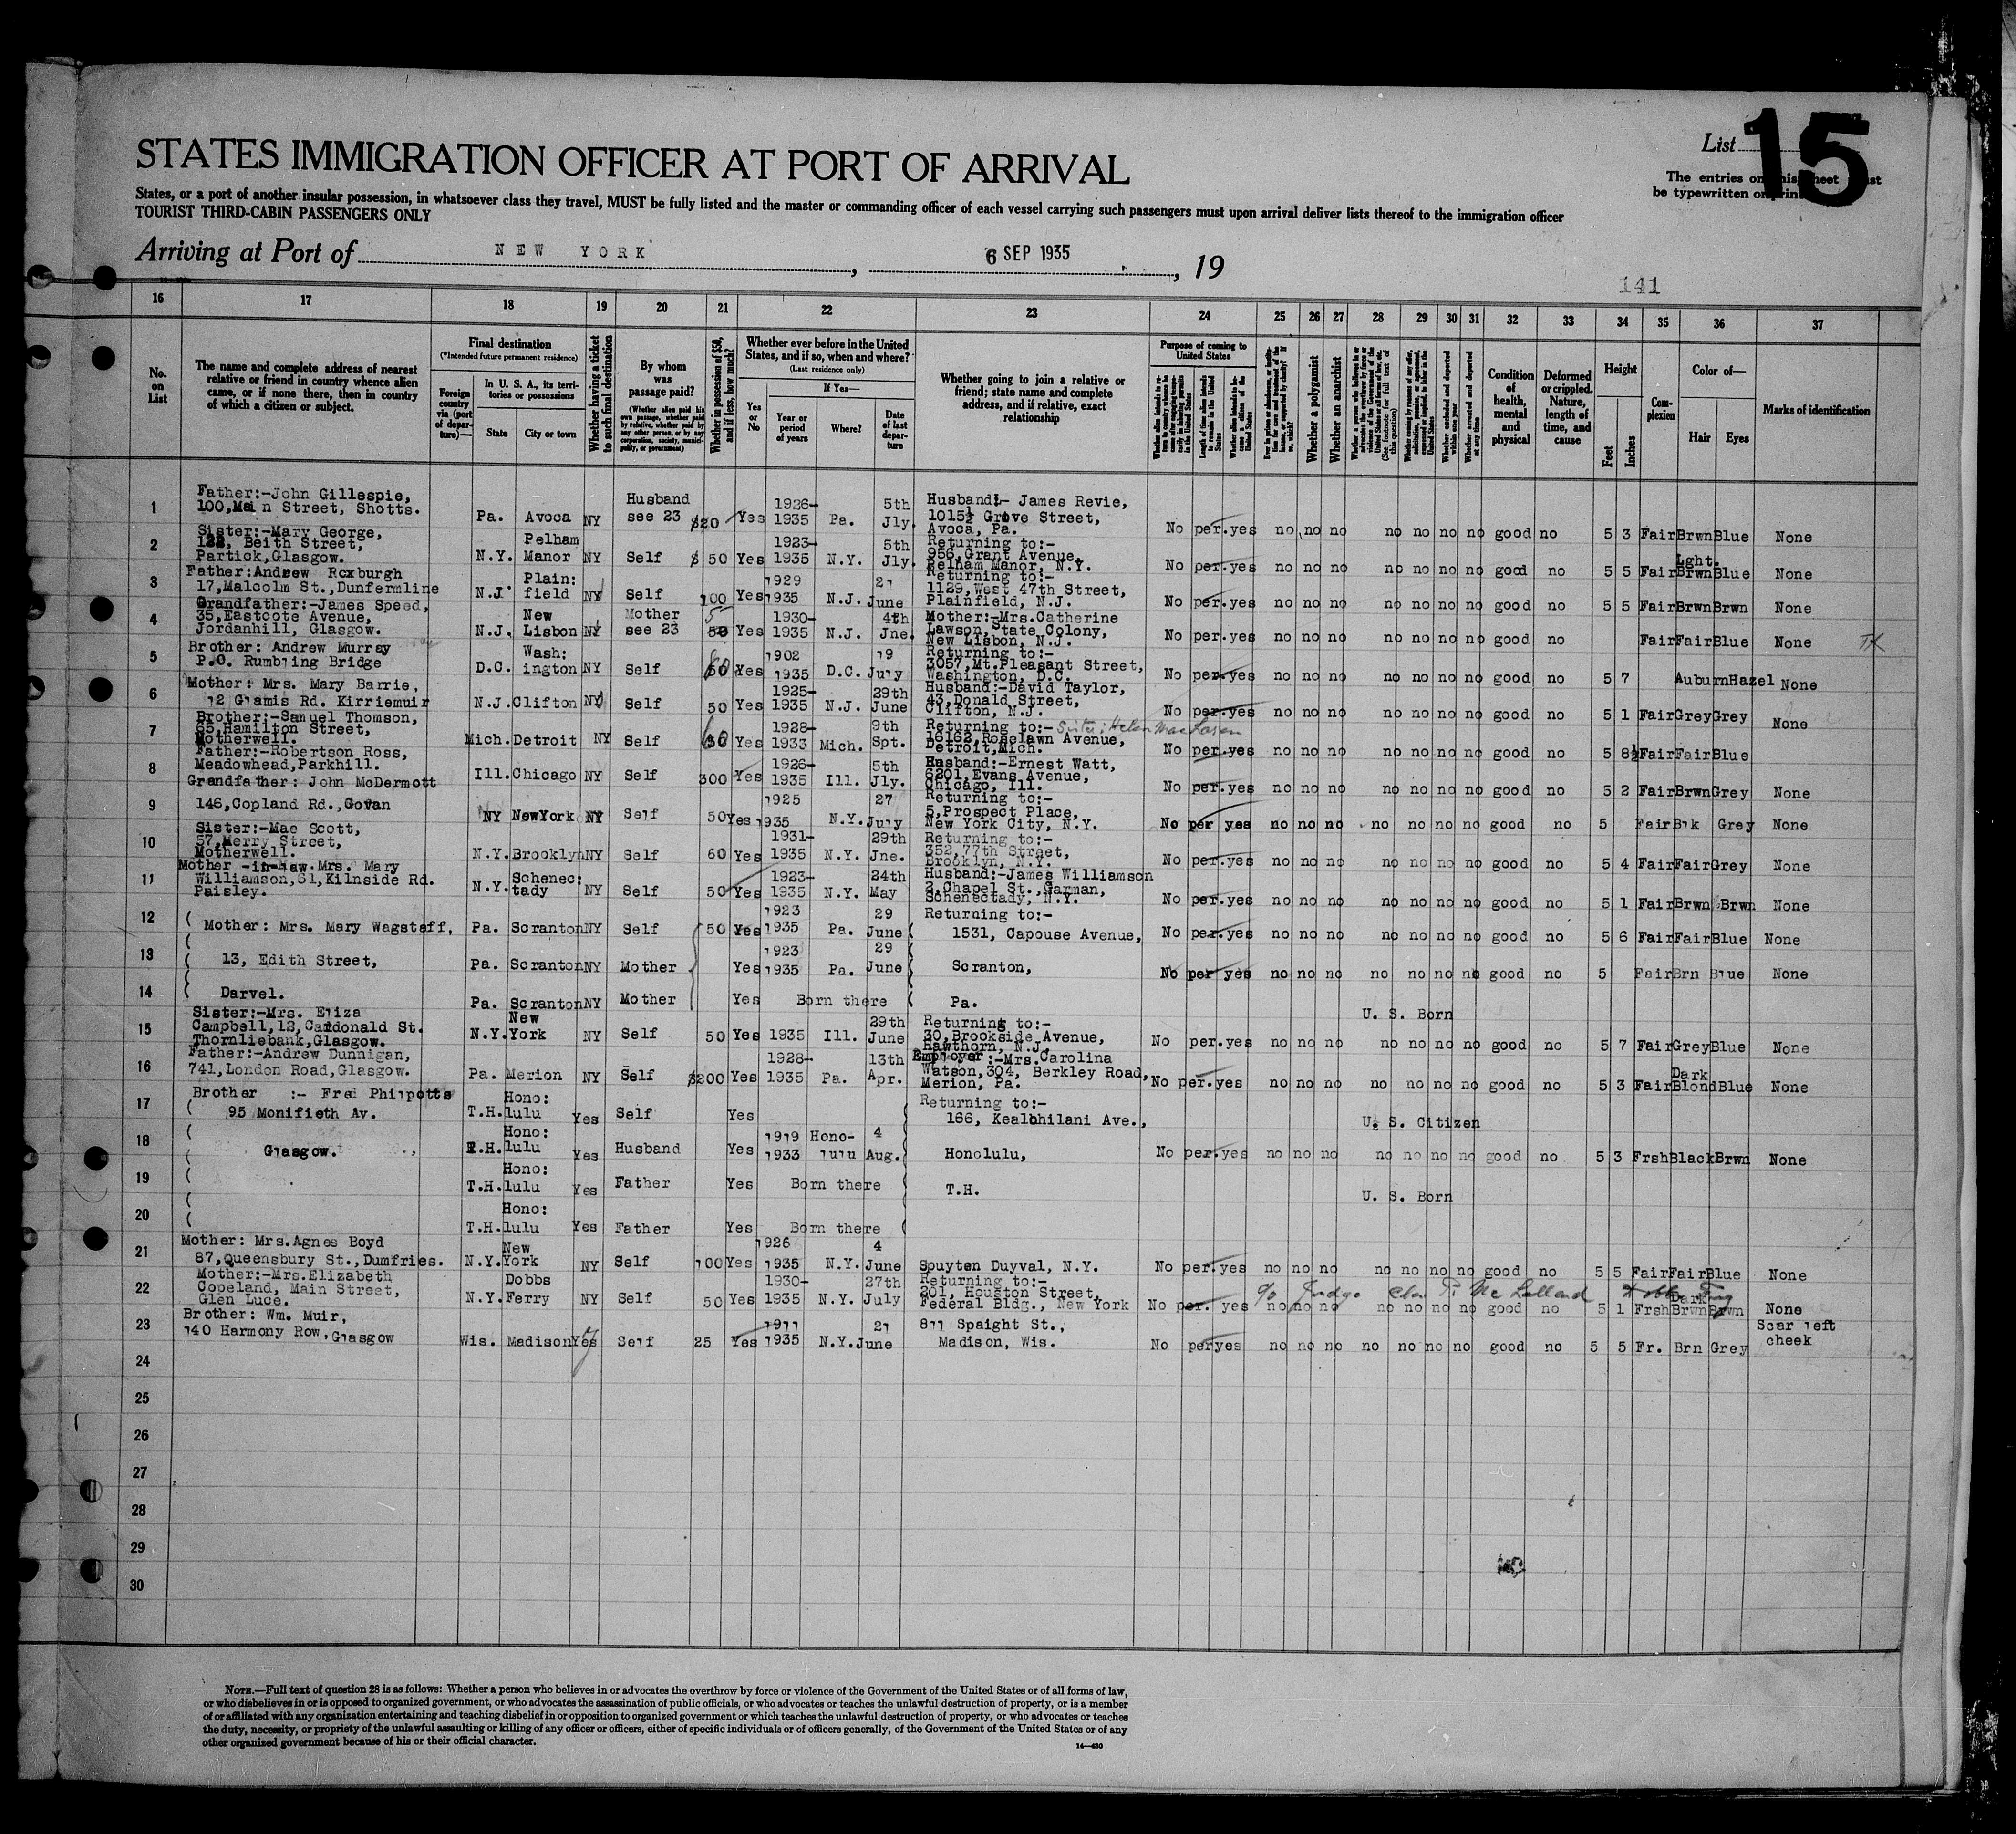 List 15
STATES IMMIGRATION OFFICER AT PORT OF ARRIVAL
The entries on this sheet must
be typewritten or print
States, or a port of another insular possession, in whatsoever class they travel, MUST be fully listed and the master or commanding officer of each vessel carrying such passengers must upon arrival deliver lists thereof to the immigration officer
TOURIST THIRD-CABIN PASSENGERS ONLY
Arriving at Port of NEW YORK, 6 SEP 1935, 19
141
16 17 18 19 20 21 22 23 24 25 26 27 28 29 30 31 32 33 34 35 36 37
No. on List
The name and complete address of nearest relative or friend in country whence alien came, or if none there, then in country of which a citizen or subject.
Final destination
(*Intended future permanent residence)
Foreign country via (port of departure)—
In U. S. A., its territories or possessions
State City or town
Whether having a ticket to such final destination
By whom was passage paid?
(Whether alien paid his own passage, whether paid by relative, whether paid by any other person, or by any corporation, society, municipality, or government)
Whether in possession of $50, and if less, how much?
Whether ever before in the United States, and if so, when and where?
(Last residence only)
Yes or No
If Yes—
Year or period of years
Where?
Date of last departure
Whether going to join a relative or friend; state name and complete address, and if relative, exact relationship
Purpose of coming to United States
Length of time alien intends to remain in the United States
Whether alien intends to become a citizen of the United States
Whether a polygamist
Whether an anarchist
(See footnote for full text of this question)
Whether excluded and deported within one year
Whether arrested and deported at any time
Condition of health, mental and physical
Deformed or crippled. Nature, length of time, and cause
Height
Feet Inches
Complexion
Color of—
Hair Eyes
Marks of identification
1 Father:-John Gillespie, 100,Main Street, Shotts. Pa. Avoca NY Husband see 23 $20 Yes 1926-1935 Pa. 5th Jly. Husband:- James Revie, 1015½ Grove Street, Avoca, Pa. No per. yes no no no no no no no good no 5 3 Fair Brwn Blue None
2 Sister:-Mary George, Beith Street, Partick,Glasgow. N.Y. Pelham Manor NY Self $ 50 Yes 1923-1935 N.Y. 5th Jly. Returning to:- 956,Grant Avenue, Pelham Manor, N.Y. No per. yes no no no no no no no good no 5 5 Fair Lght. Brwn Blue None
3 Father:Andrew Roxburgh 17,Malcolm St.,Dunfermline N.J. Plain: field NY Self 100 Yes 1929 1935 N.J. 21 June Returning to:- 1129,West 47th Street, Plainfield, N.J. No per. yes no no no no no no no good no 5 5 Fair Brwn Brwn None
4 Grandfather:-James Speed, 35,Eastcote Avenue, Jordanhill, Glasgow. N.J. New Lisbon NY Mother see 23 50 Yes 1930-1935 N.J. 4th Jne. Mother:-Mrs.Catherine Lawson,State Colony, New Lisbon, N.J. No per. yes no no no no no no no good no Fair Fair Blue None
5 Brother: Andrew Murray P.O. Rumbling Bridge D.C. Wash: ington NY Self 60 Yes 1902 1935 D.C. 19 July Returning to:- 3057,Mt.Pleasant Street, Washington, D.C. No per. yes no no no no no no no good no 5 7 Auburn Hazel None
6 Mother: Mrs. Mary Barrie, 12 Glamis Rd. Kirriemuir N.J. Clifton NY Self 50 Yes 1925-1935 N.J. 29th June Husband:-David Taylor, 43,Donald Street, Clifton, N.J. No per. yes no no no no no no no good no 5 1 Fair Grey Grey None
7 Brother:-Samuel Thomson, 65,Hamilton Street, Motherwell. Mich. Detroit NY Self 60 Yes 1928-1933 Mich. 9th Spt. Returning to:- Sister: Helen 16162,Roselawn Avenue, Detroit,Mich. No per. yes no no no no no no no good no 5 8½ Fair Fair Blue
8 Father:-Robertson Ross, Meadowhead,Parkhill. Ill. Chicago NY Self 300 Yes 1926-1935 Ill. 5th Jly. Husband:-Ernest Watt, 6201,Evans Avenue, Chicago, Ill. No per. yes no no no no no no no good no 5 2 Fair Brwn Grey None
9 Grandfather: John McDermott 146,Copland Rd.,Govan NY NewYork NY Self 50 Yes 1925 1935 N.Y. 27 July Returning to:- 5,Prospect Place, New York City, N.Y. No per yes no no no no no no no good no 5 Fair Blk Grey None
10 Sister:-Mae Scott, 57,Merry Street, Motherwell. N.Y. Brooklyn NY Self 60 Yes 1931-1935 N.Y. 29th Jne. Returning to:- 352,77th Street, Brooklyn, N.Y. No per. yes no no no no no no no good no 5 4 Fair Fair Grey None
11 Mother -in-law.Mrs. Mary Williamson,31,Kilnside Rd. Paisley. N.Y. Schenec: tady NY Self 50 Yes 1923-1935 N.Y. 24th May Husband:-James Williamson 2,Chapel St.,Garman, Schenectady, N.Y. No per. yes no no no no no no no good no 5 1 Fair Brwn Brwn None
12 ( Mother: Mrs. Mary Wagstaff, Pa. Scranton NY Self 50 Yes 1923 1935 Pa. 29 June ( Returning to:- 1531, Capouse Avenue, No per. yes no no no no no no no good no 5 6 Fair Fair Blue None
13 ( 13, Edith Street, Pa. Scranton NY Mother Yes 1923 1935 Pa. 29 June ( Scranton, No per yes no no no no no no no good no 5 Fair Brn Blue None
14 ( Darvel. Pa. Scranton NY Mother Yes Born there ( Pa. U. S. Born
15 Sister:-Mrs. Eliza Campbell,12,Cardonald St. Thornliebank,Glasgow. N.Y. New York NY Self 50 Yes 1935 Ill. 29th June Returning to:- 30,Brookside Avenue, Hawthorn, N.J. No per. yes no no no no no no no good no 5 7 Fair Grey Blue None
16 Father:-Andrew Dunnigan, 741,London Road,Glasgow. Pa. Merion NY Self $200 Yes 1928-1935 Pa. 13th Apr. Employer:-Mrs.Carolina Watson,304, Berkley Road, Merion, Pa. No per. yes no no no no no no no good no 5 3 Fair Dark Blond Blue None
17 Brother :- Fred Philpotts ( 95 Monifieth Av. T.H. Hono: lulu Yes Self Yes ( Returning to:- 166, Kealohilani Ave., U. S. Citizen
18 ( Glasgow. T.H. Hono: lulu Yes Husband Yes 1919 1933 Hono- lulu 4 Aug. ( Honolulu, No per. yes no no no no no no no good no 5 3 Frsh Black Brwn None
19 ( T.H. Hono: lulu Yes Father Yes Born there ( T.H. U. S. Born
20 ( T.H. Hono: lulu Yes Father Yes Born there (
21 Mother: Mrs.Agnes Boyd 87,Queensbury St.,Dumfries. N.Y. New York NY Self 100 Yes 1926 1935 N.Y. 4 June Spuyten Duyval, N.Y. No per. yes no no no no no no no good no 5 5 Fair Fair Blue None
22 Mother:-Mrs.Elizabeth Copeland, Main Street, Glen Luce. N.Y. Dobbs Ferry NY Self 50 Yes 1930-1935 N.Y. 27th July Returning to:- 201, Houston Street, Federal Bldg., New York c/o Judge No per. yes no no no no no no no good no 5 1 Frsh Dark Brwn Brwn None
23 Brother: Wm. Muir, 140 Harmony Row,Glasgow Wis. Madison Yes Self 25 Yes 1911 1935 N.Y. 21 June 811 Spaight St., Madison, Wis. No per yes no no no no no no no good no 5 5 Fr. Brn Grey Scar left cheek
24
25
26
27
28
29
30
NOTE.—Full text of question 28 is as follows: Whether a person who believes in or advocates the overthrow by force or violence of the Government of the United States or of all forms of law,
or who disbelieves in or is opposed to organized government, or who advocates the assassination of public officials, or who advocates or teaches the unlawful destruction of property, or is a member
of or affiliated with any organization entertaining and teaching disbelief in or opposition to organized government or which teaches the unlawful destruction of property, or who advocates or teaches
the duty, necessity, or propriety of the unlawful assaulting or killing of any officer or officers, either of specific individuals or of officers generally, of the Government of the United States or of any
other organized government because of his or their official character.
14—430